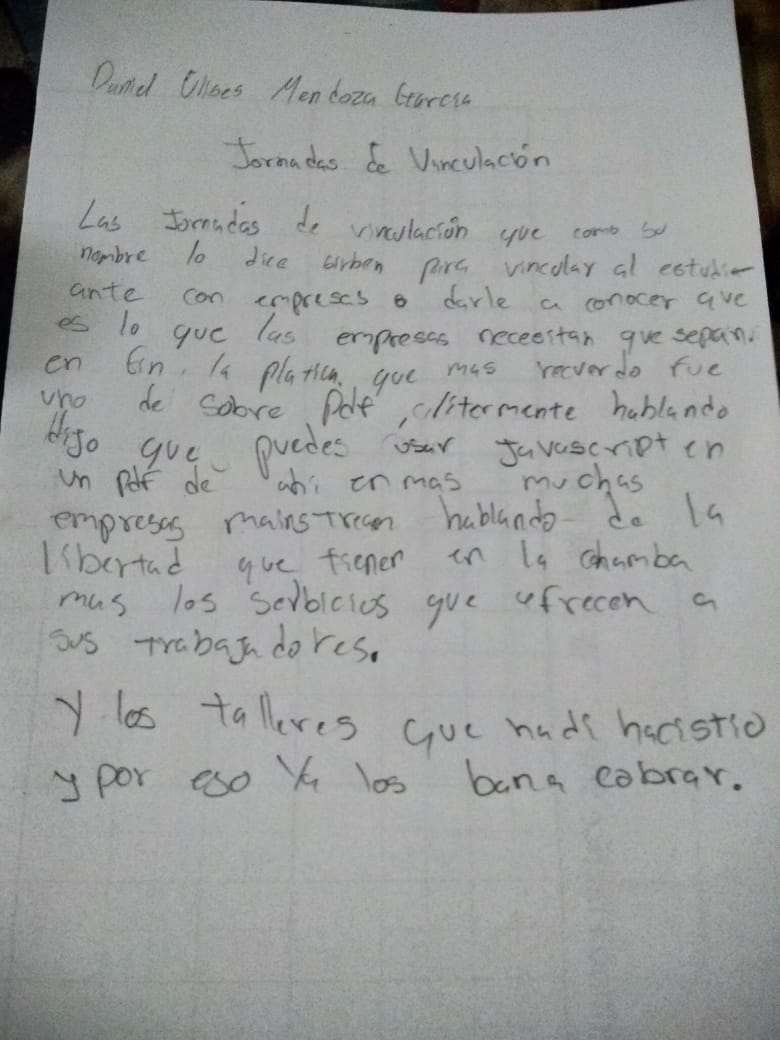 Daniel Ulises Mendoza Garcia
Jornadas de Vinculación
Las Jornadas de vinculación que como su
nombre lo dice sirben para vincular al estudi-
ante con empresas o darle a conocer que
es lo que las empresas necesitan que sepan.
en fin. la platica que mas recuerdo fue
uno de sobre Pdf, hablando
dijo que puedes usar Javascript en
un pdf de ahi en mas muchas
empresas mainstream hablando de la
libertad que tienen en la chamba
mas los serbicios que ofrecen a
sus trabajadores.
Y los talleres que nadi hacistio
y por eso ya los bana cobrar.